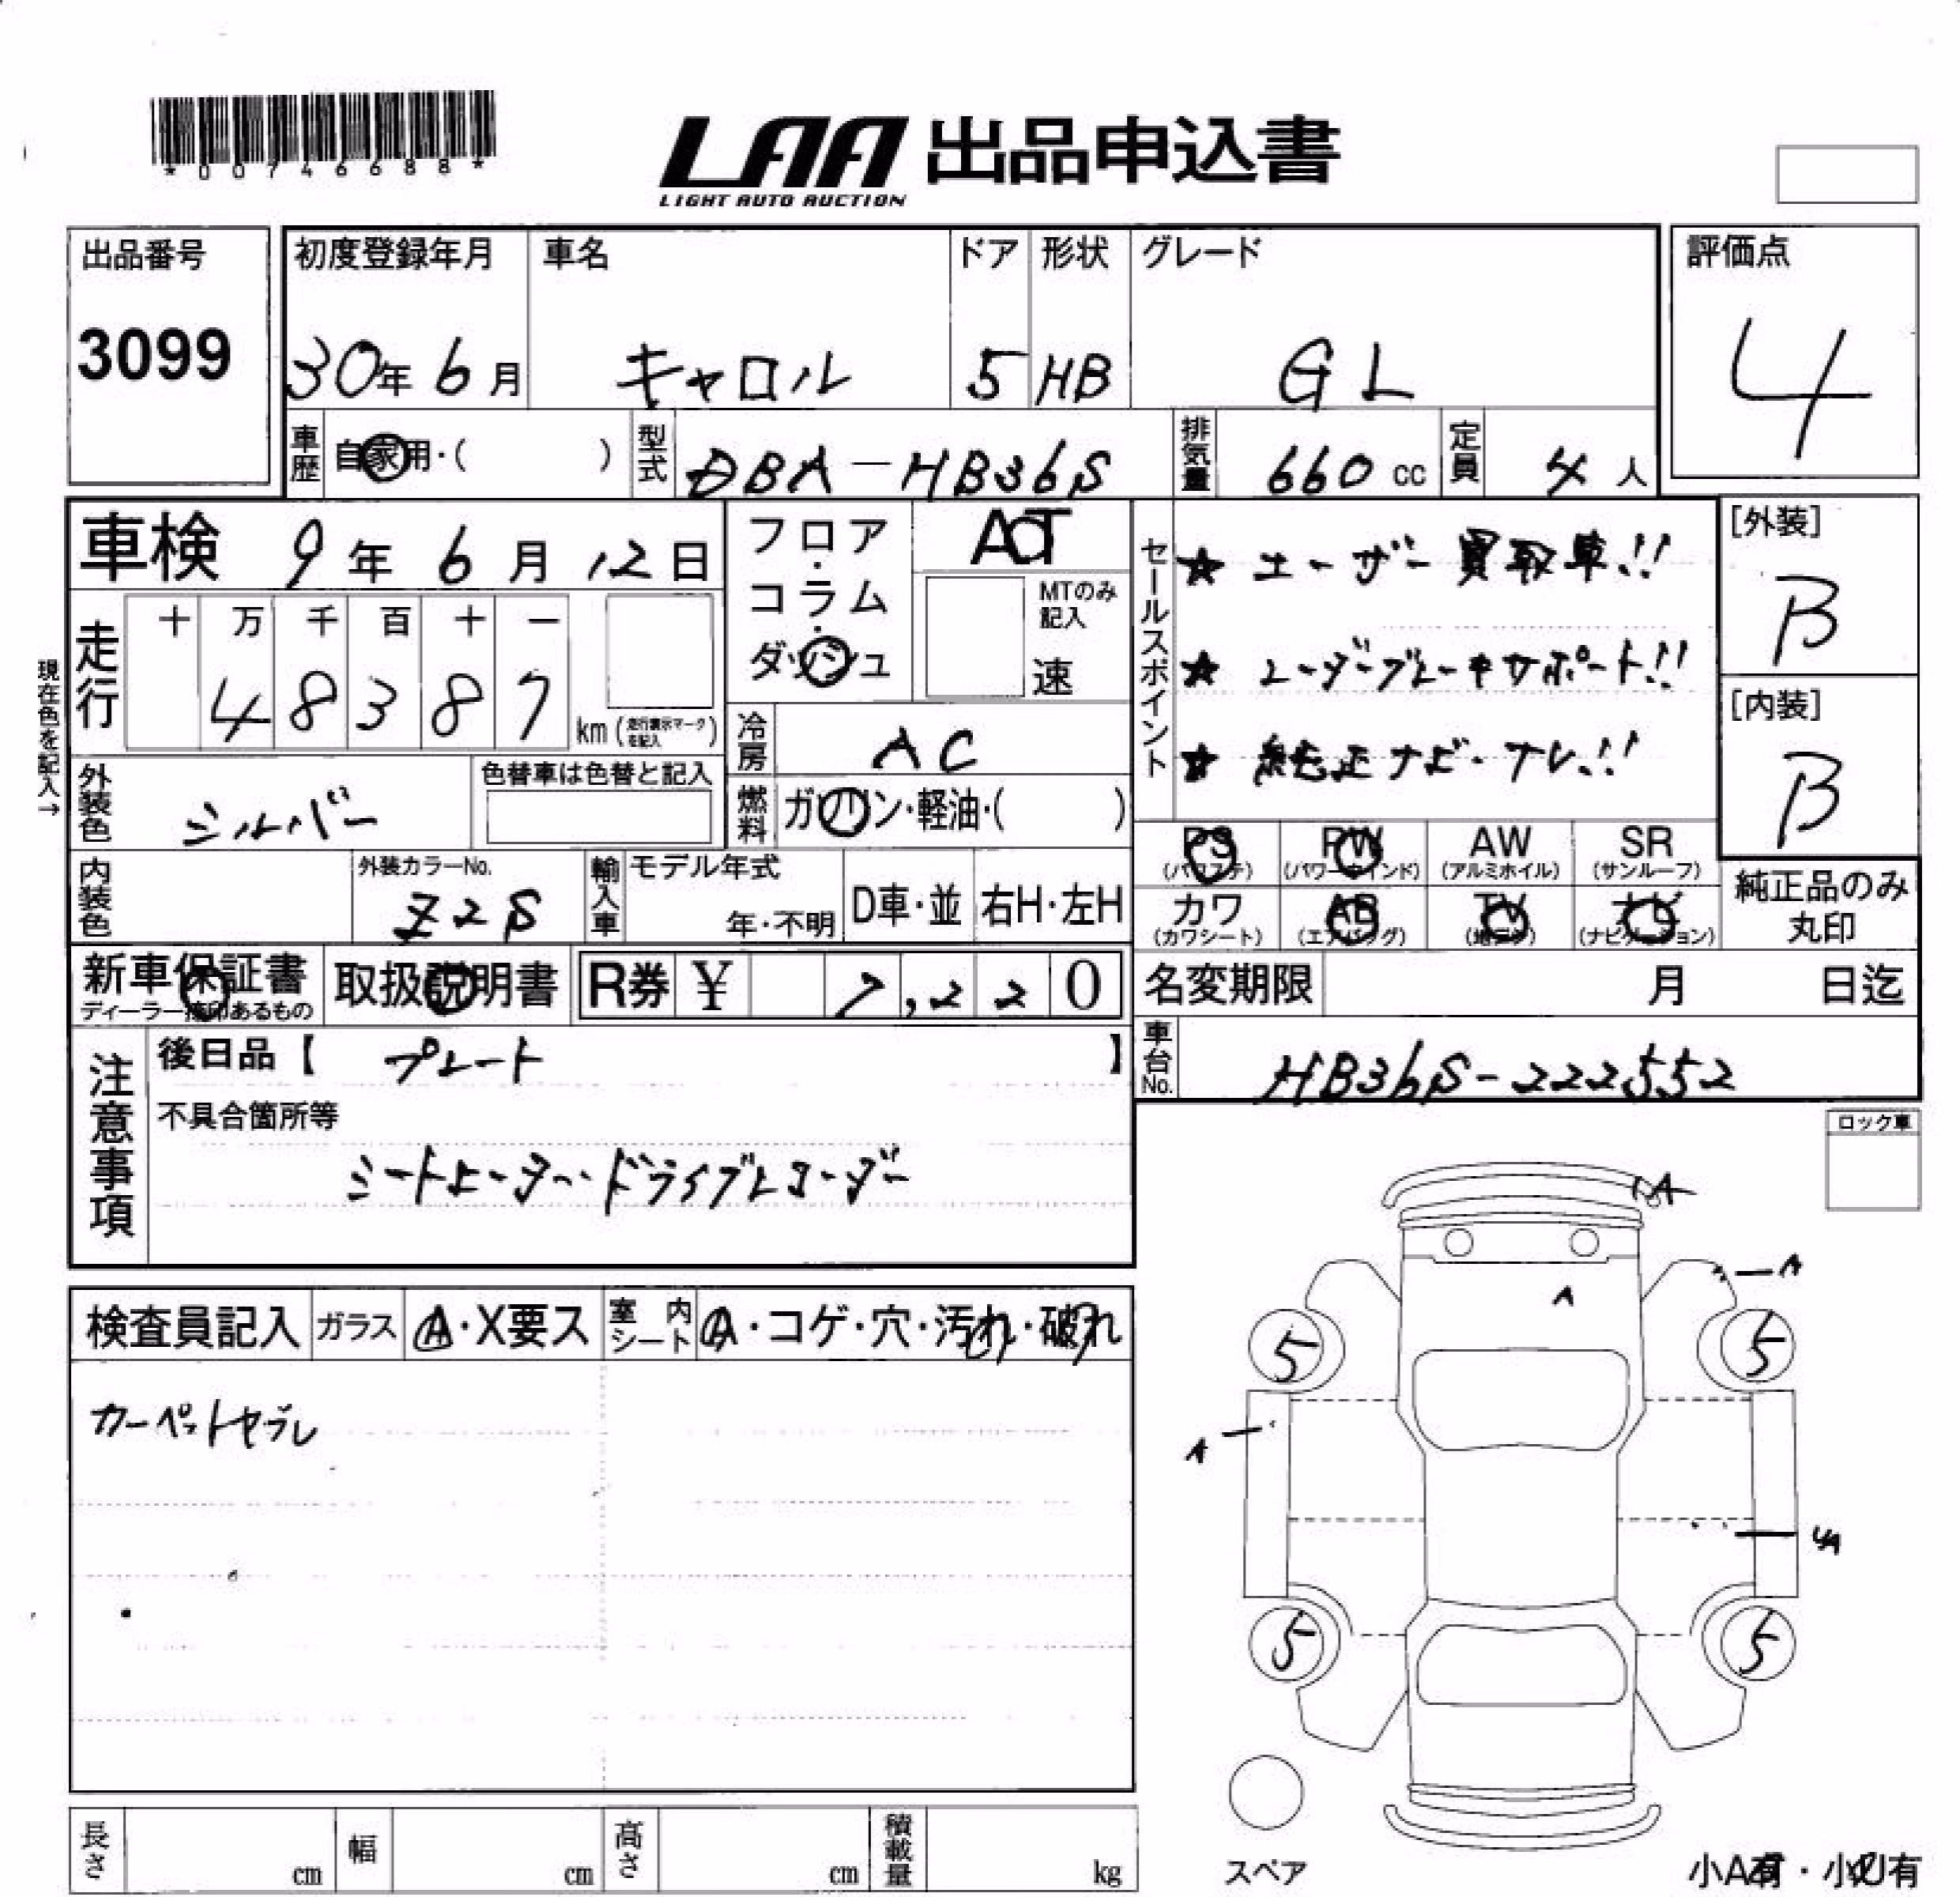 *00746688*
LAA 出品申込書
LIGHT AUTO AUCTION
出品番号
3099
初度登録年月
30年6月
車名
キャロル
ドア
5
形状
HB
グレード
GL
評価点
4
車歴
自家用・( )
型式
DBA-HB36S
排気量
660 cc
定員
4 人
車検 9年6月12日
フロア・コラム・ダッシュ
AT
MTのみ記入
速
セールスポイント
★ ユーザー買取車!!
★ レーダーブレーキサポート!!
★ 純正ナビ・TV!!
[外装]
B
[内装]
B
現在色を記入→
走行
十 万 千 百 十 一
4 8 3 8 7
km (走行表示マークを記入)
冷房
AC
外装色
シルバー
色替車は色替と記入
燃料
ガソリン・軽油・( )
内装色
外装カラーNo.
Z2S
輸入車
モデル年式
年・不明
D車・並
右H・左H
PS (パワステ)
PW (パワーウインド)
AW (アルミホイル)
SR (サンルーフ)
カワ (カワシート)
AB (エアバッグ)
TV (地デジ)
ナビ (ナビゲーション)
純正品のみ丸印
新車保証書
ディーラー捺印あるもの
取扱説明書
R券 ¥ 7,220
名変期限 月 日迄
車台No.
HB36S-222552
注意事項
後日品【 プレート 】
不具合箇所等
シートヒーター・ドライブレコーダー
ロック車
検査員記入
ガラス
A・X要ス
室内シート
A・コゲ・穴・汚れ・破れ
カーペットヤブレ
A
A
A
A
5
5
5
5
長さ cm
幅 cm
高さ cm
積載量 kg
スペア
小A有・小U有